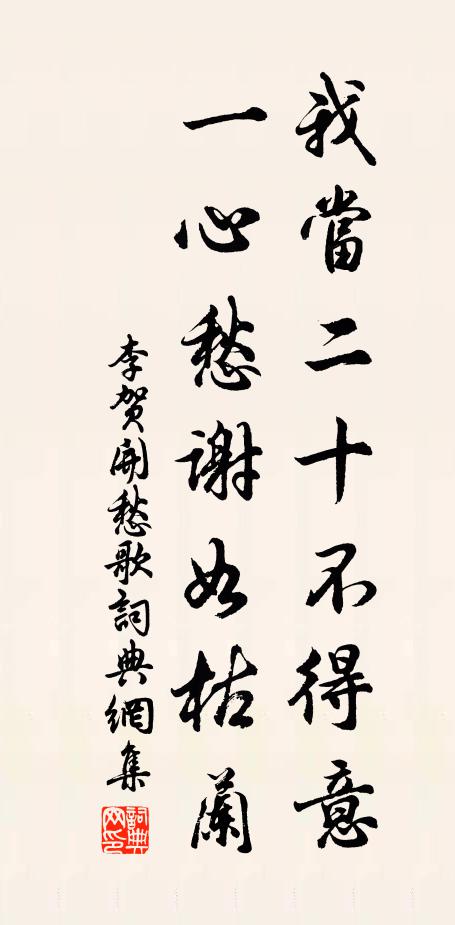 我當二十不得意
一心愁謝如枯蘭
李賀開愁歌詞典網集
詞典網印